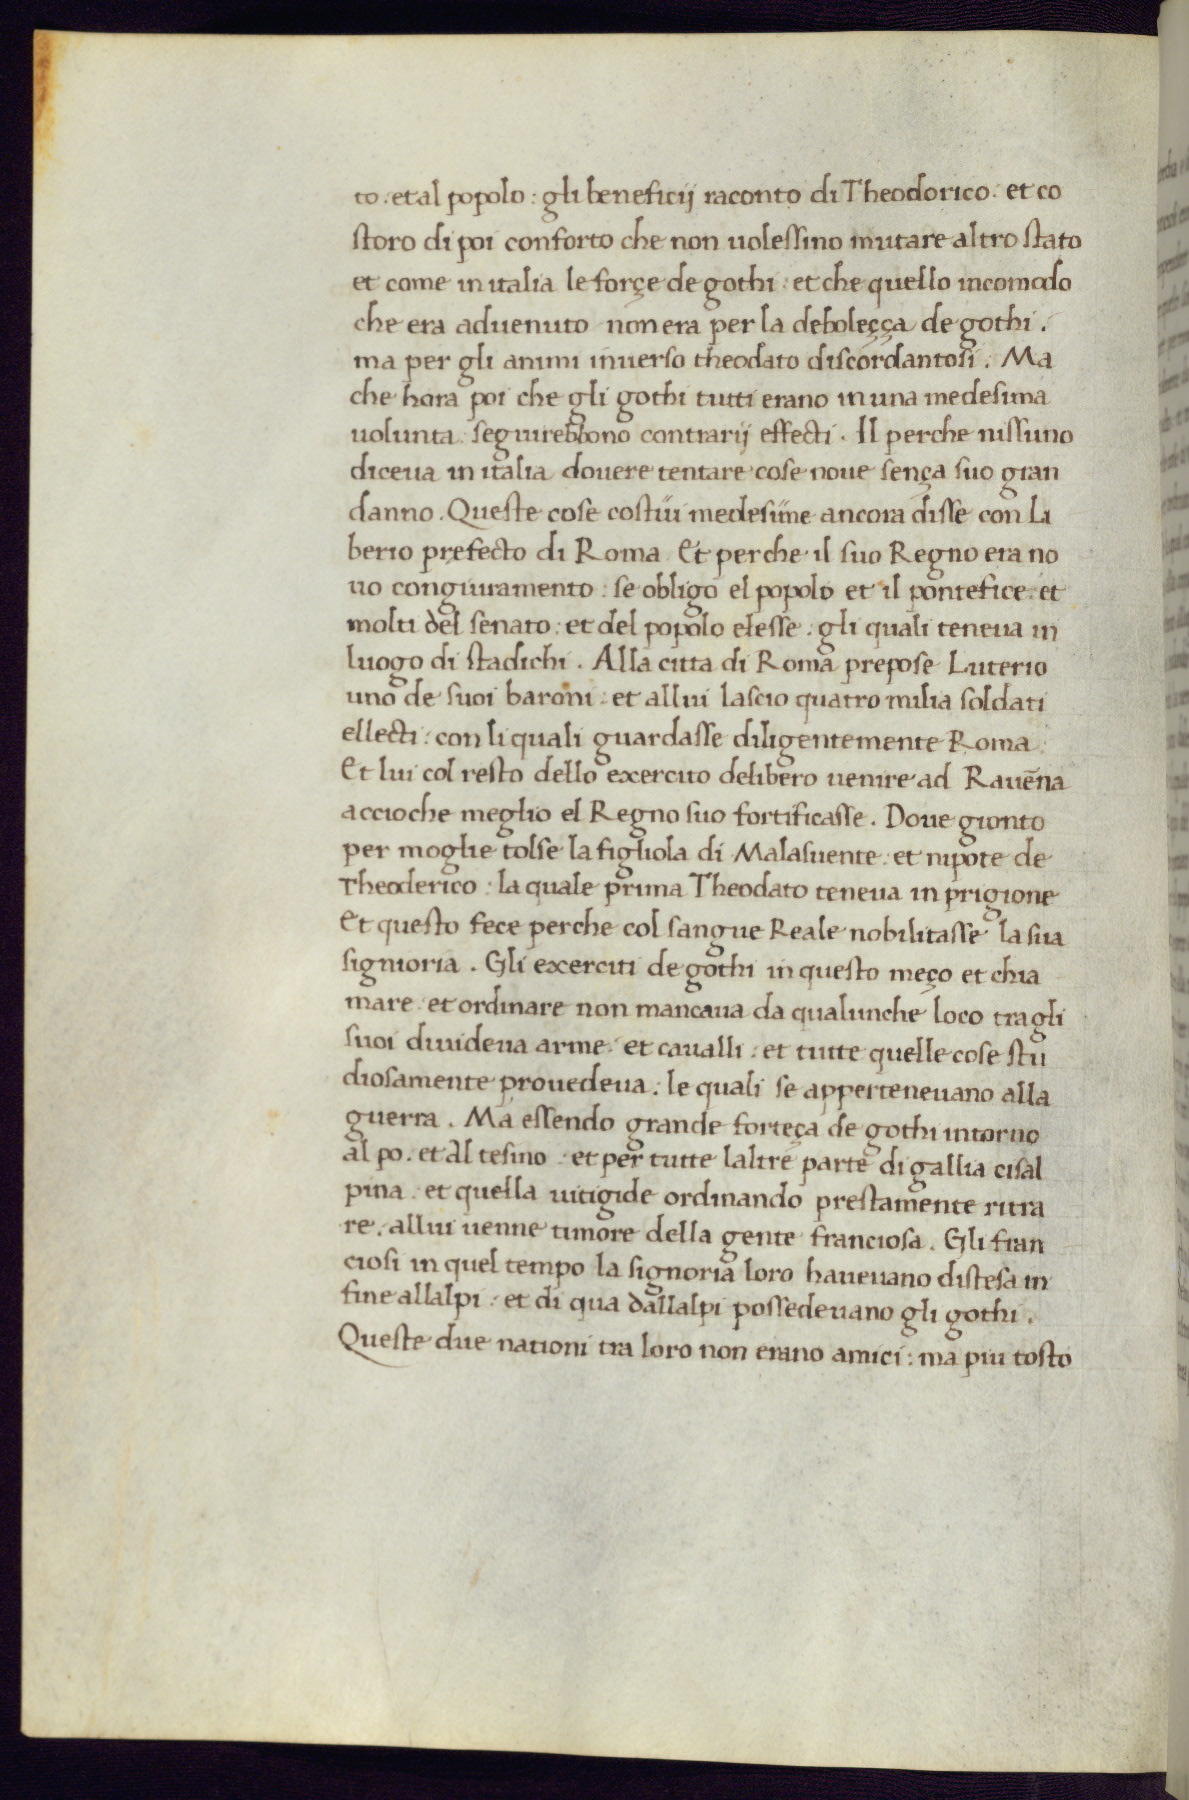 to. et al popolo: gli beneficij raconto di Theodorico. et co
storo di poi conforto che non uolessino mutare altro stato
et come in italia le forçe de gothi: et che quello incomodo
che era aduenuto non era per la deboleçça de gothi.
ma per gli animi inuerso theodato discordantosi. Ma
che hora poi che gli gothi tutti erano in una medesima
uolunta. seguirebbono contrarij effecti. Il perche nissuno
diceua in italia douere tentare cose noue sença suo gran
danno. Queste cose costui medesime ancora disse con Li
berio prefecto di Roma Et perche il suo Regno era no
uo congiuramento: se obligo el popolo et il pontefice. et
molti del senato: et del popolo elesse. gli quali teneua in
luogo di stadichi. Alla citta di Roma prepose Luterio
uno de suoi baroni: et allui lascio quatro milia soldati
ellecti: con li quali guardasse diligentemente Roma:
Et lui col resto dello exercito delibero uenire ad Rauēna
accioche meglio el Regno suo fortificasse. Doue gionto
per moglie tolse la figliola di Malasuente: et nipote de
Theoderico: la quale prima Theodato teneua in prigione
Et questo fece perche col sangue Reale nobilitasse la sua
signioria. Gli exerciti de gothi in questo meço et chia
mare. et ordinare non mancaua da qualunche loco tra gli
suoi diuideua arme. et caualli: et tutte quelle cose stu
diosamente prouedeua: le quali se apperteneuano alla
guerra. Ma essendo grande forteça de gothi intorno
al po. et al tesino: et per tutte laltre parte di gallia cisal
pina. et quella uitigide ordinando prestamente ritra
re. allui uenne timore della gente franciosa. Gli fran
ciosi in quel tempo la signoria loro haueuano distesa in
fine allalpi: et di qua dallalpi possedeuano gli gothi.
Queste due nationi tra loro non erano amici: ma piu tosto